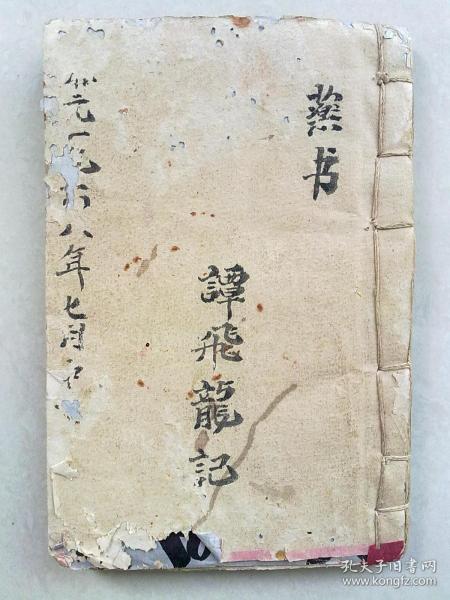 薬书
譚飛龍記
元一九八年七月
孔夫子旧书网
www.kongfz.com